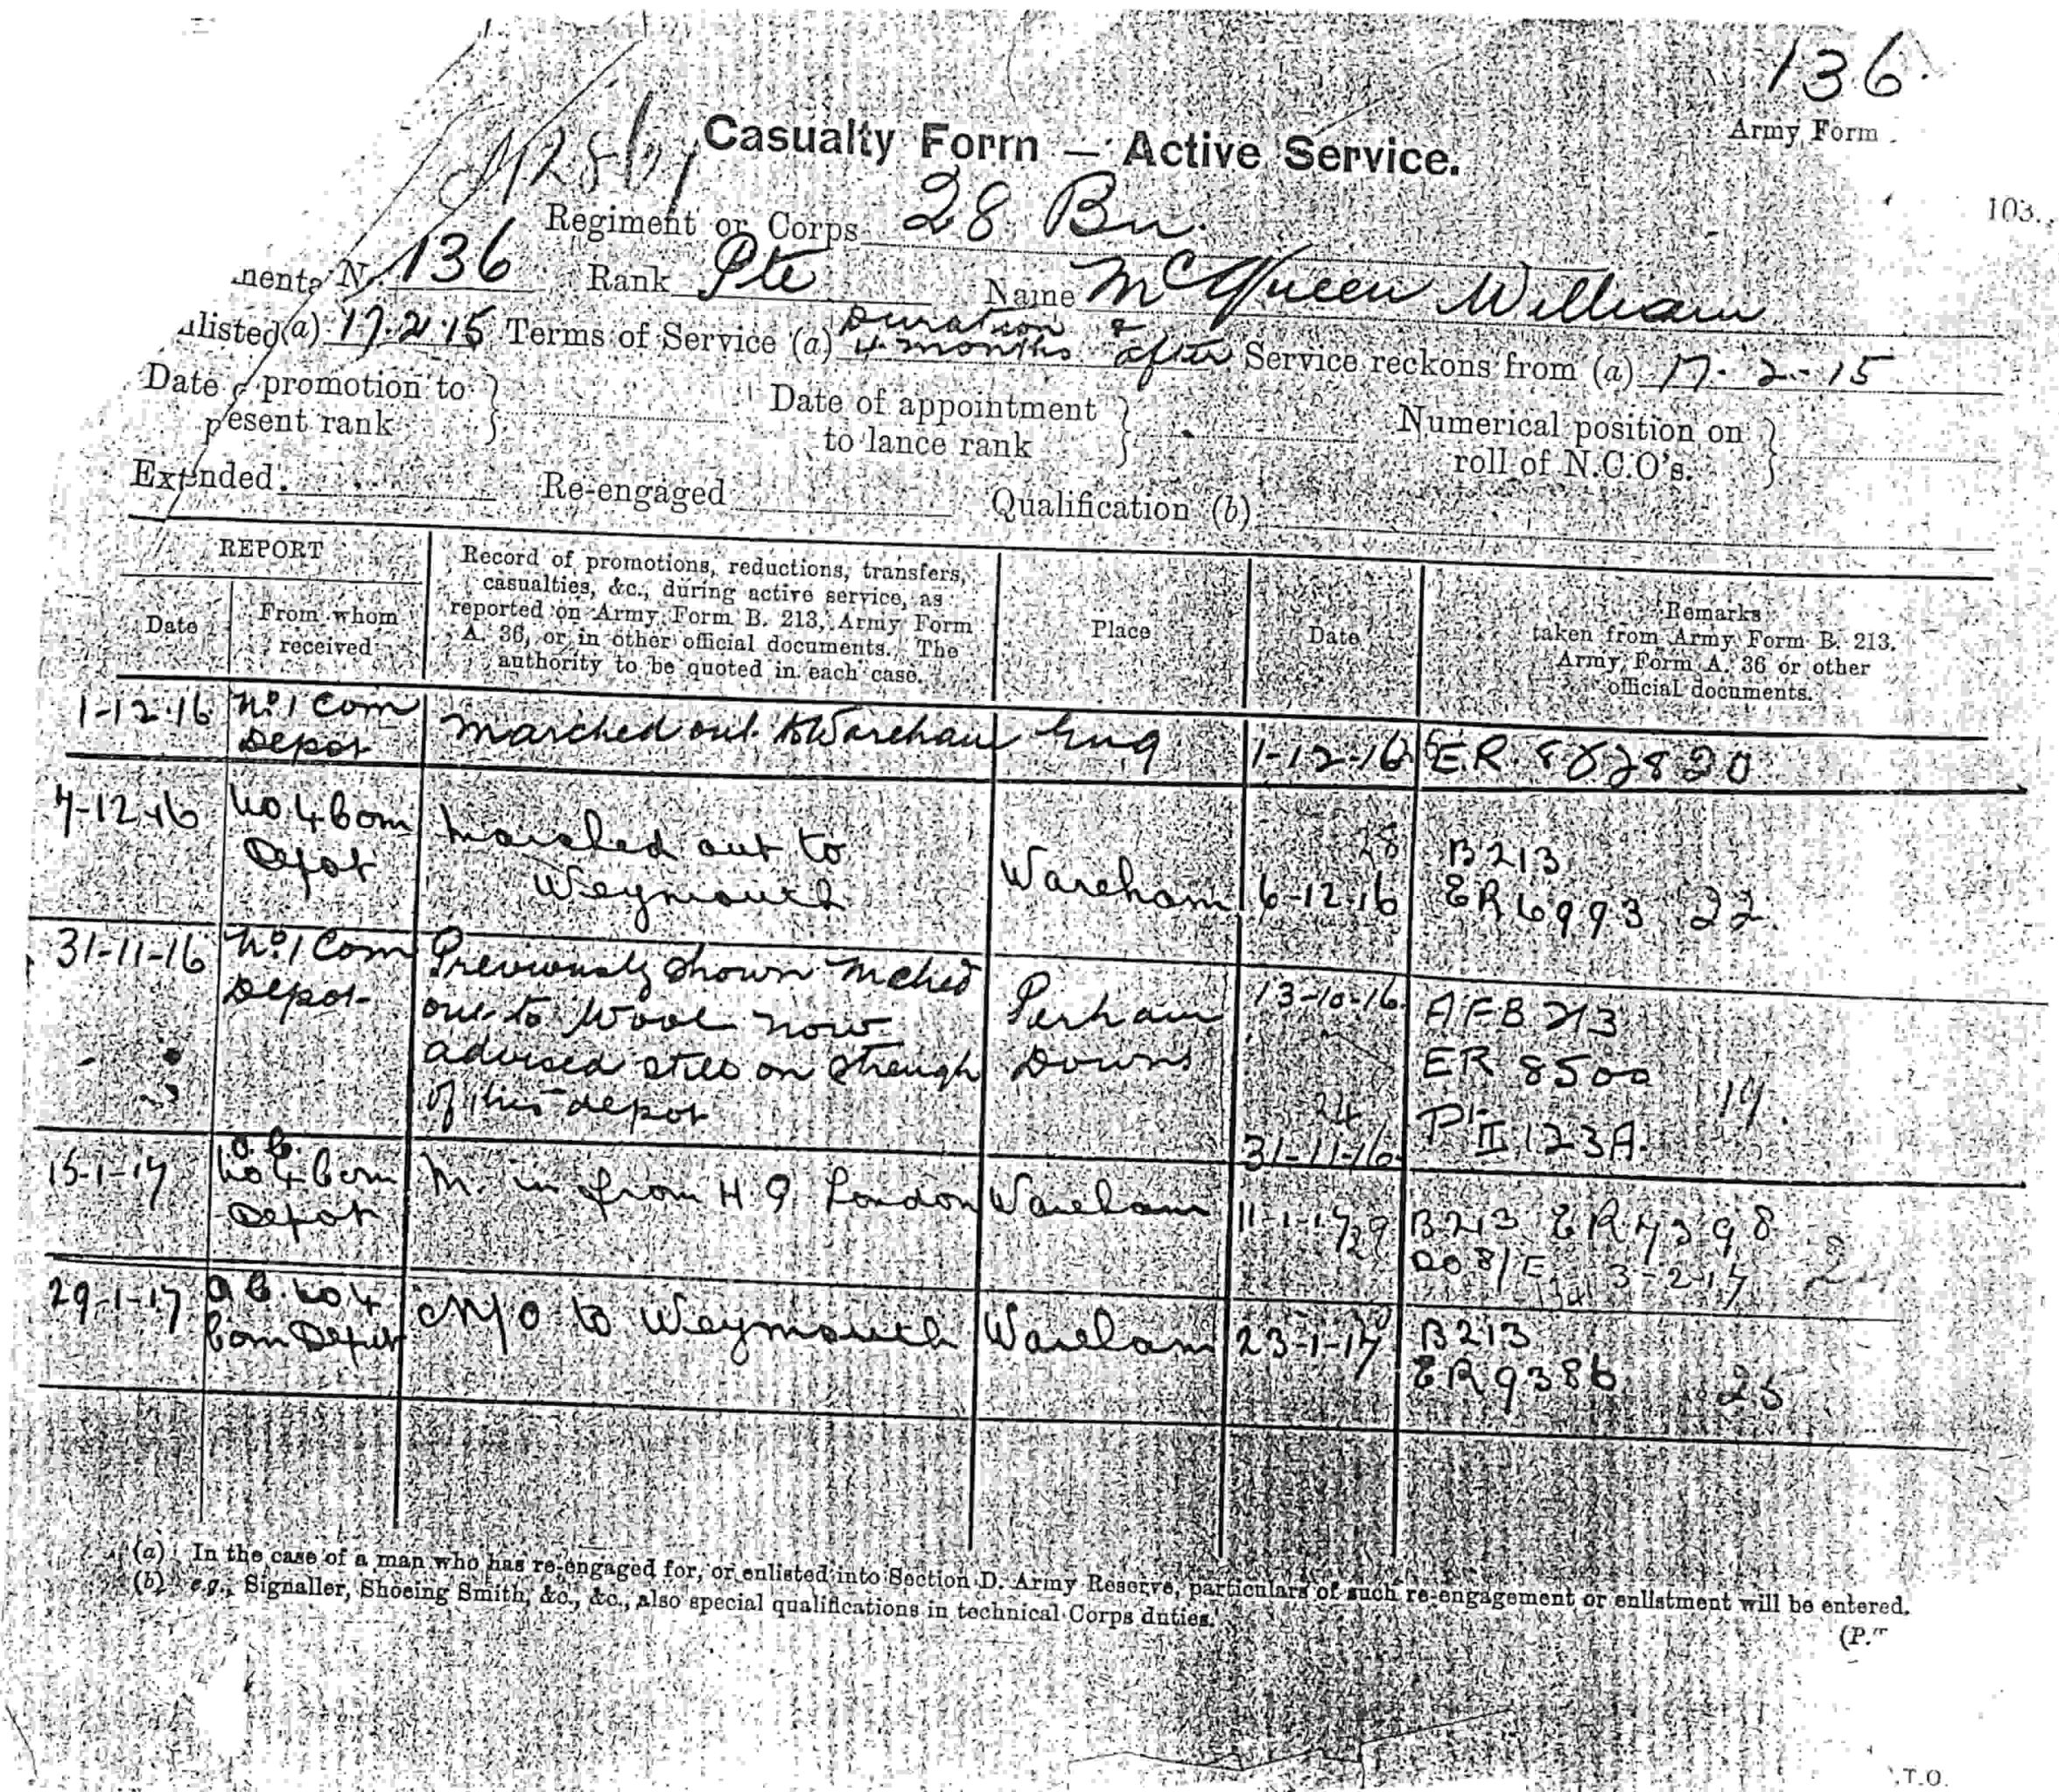 136.
Army Form
Casualty Form — Active Service.
103.
Regiment or Corps 28 Bn.
No. 136 Rank Pte Name McQueen William
listed (a) 17.2.15 Terms of Service (a) Duration & 4 months after Service reckons from (a) 17-2-15
Date of promotion to present rank } Date of appointment to lance rank } Numerical position on roll of N.C.O's. }
Extended. Re-engaged Qualification (b)
REPORT
Date
From whom received
Record of promotions, reductions, transfers,
casualties, &c., during active service, as
reported on Army Form B. 213, Army Form
A. 36, or in other official documents. The
authority to be quoted in each case.
Place
Date
Remarks
taken from Army Form B. 213,
Army Form A. 36 or other
official documents.
1-12-16 No 1 Com Depot Marched out to Wareham Eng 1-12-16 ER
7-12-16 No 4 Com Depot Marched out to Weymouth Wareham 28 6-12-16 B213 ER 6993 22
31-11-16 No 1 Com Depot Previously shown mched
out to Wool now
advised still on strength
of this depot
Perham Downs
13-10-16
24
31-11-16
AFB 213
ER 8500
PII 123A. 14.
15-1-17 No 4 Com Depot M. in from HQ London Wareham 11-1-17 29 B213 ER 7398
DO 8/ 3-2-17
29-1-17 No 4 Com Depot M/O to Weymouth Wareham 23-1-17 B213
ER 9386 25
(a) In the case of a man who has re-engaged for, or enlisted into Section D. Army Reserve, particulars of such re-engagement or enlistment will be entered.
(b) e.g., Signaller, Shoeing Smith, &c., &c., also special qualifications in technical Corps duties.
(P.
T.O.